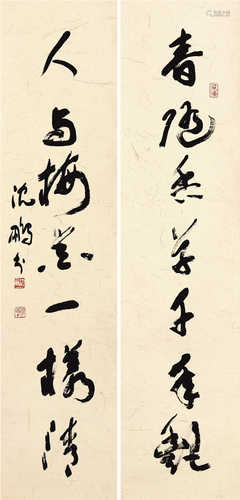 春随香草千年艷
人与梅花一樣清
沈鵬书